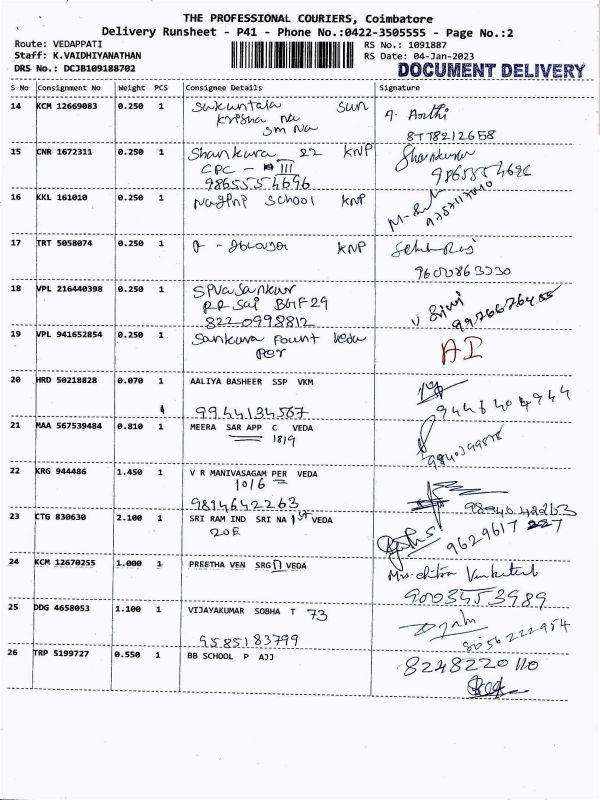 THE PROFESSIONAL COURIERS, Coimbatore
Delivery Runsheet - P41 - Phone No.:0422-3505555 - Page No.:2
Route: VEDAPPATI
RS No.: 1091887
Staff: K.VAIDHIYANATHAN
RS Date: 04-Jan-2023
DRS No.: DCJB109188702
DOCUMENT DELIVERY
S No Consignment No Weight PCS Consignee Details Signature
14 KCM 12669083 0.250 1 Sakuntala Sun A. Aarthi
Krisha na
Sm Na 8778212658
15 CNR 1672311 0.250 1 Shankara 22 KNP Shankara
CPC - III
9865554696 9865554696
16 KKL 161010 0.250 1 Nagini School KNP
17 TRT 5058074 0.250 1 KNP
18 VPL 216440398 0.250 1 Sivasankar
RR Sai
8220998812
19 VPL 941652854 0.250 1 Sankara Fount Veda
Per AI
20 HRD 50218828 0.070 1 AALIYA BASHEER SSP VKM
9944134567
21 MAA 567539484 0.810 1 MEERA SAR APP C VEDA
1819
22 KRG 944486 1.450 1 V R MANIVASAGAM PER VEDA
1016
9814642263
23 CTG 830630 2.100 1 SRI RAM IND SRI NA 1st VEDA
20E 9629617 227
24 KCM 12670255 1.000 1 PREETHA VEN SRG VEDA Mrs. Chitra Venkatesh
9003453989
25 DDG 4658053 1.100 1 VIJAYAKUMAR SOBHA T 73
9585183799 8056222954
26 TRP 5199727 0.550 1 BB SCHOOL P AJJ 8248220110